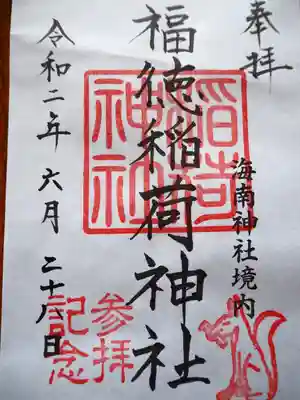 奉拝
海南神社境内
福徳稲荷神社
稲荷
神社
参拝
記念
令和二年六月二十八日